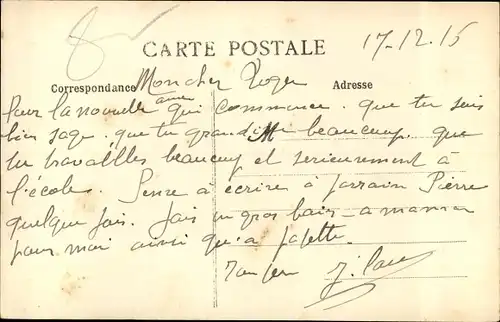 CARTE POSTALE
17-12.15
Correspondance
Adresse
Mon cher Roger
Pour la nouvelle année qui commence. que tu sois
bien sage. que tu grandisse beaucoup que
tu travailles beaucoup et serieurement à
l'école. Pense à écrire à parrain Pierre
quelque fois. Fais un gros bair - a maman
pour moi ainsi qu'a